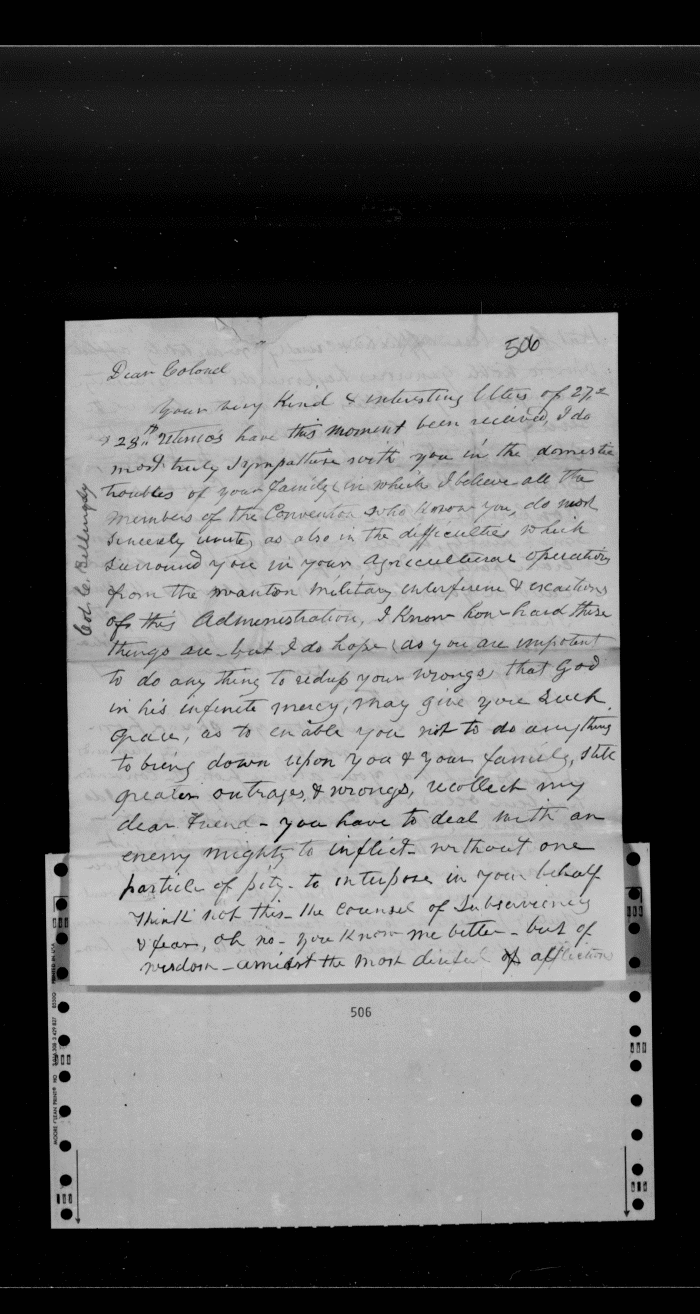 506
Dear Colonel
Your very Kind & interesting letters of 27th
& 28th Ultimos have this moment been received, I do
most truly Sympathise with you in the domestic
troubles of your family (in which I believe all the
members of the Convention who know you, do most
sincerely unite) as also in the difficulties which
surround you in your agricultural operations
from the wanton military interference & exactions
of this Administration, I Know how hard these
things are - but I do hope (as you are impotent
to do any thing to redress your wrongs) that God
in his infinite mercy, may give you Such
Grace, as to enable you not to do anything
to bring down upon you & your family, still
greater outrages, & wrongs, recollect my
dear Friend - you have to deal with an
enemy mighty to inflict - without one
particle of pity - to interpose in your behalf
Think not this - the counsel of Subserviency
& fear, oh no - you know me better - but of
wisdom - amidst the most of affliction
Col. C. Billingsly
506